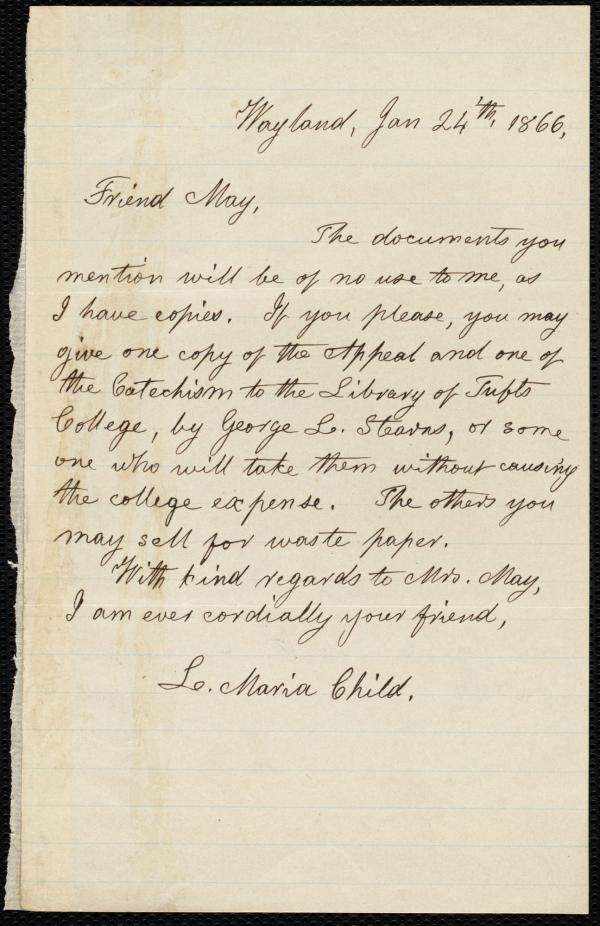 Wayland, Jan 24th, 1866,
Friend May,
The documents you
mention will be of no use to me, as
I have copies. If you please, you may
give one copy of the Appeal and one of
the Catechism to the Library of Tufts
College, by George L. Stearns, or some
one who will take them without causing
the college expense. The others you
may sell for waste paper.
With kind regards to Mrs. May,
I am ever cordially your friend,
L. Maria Child.